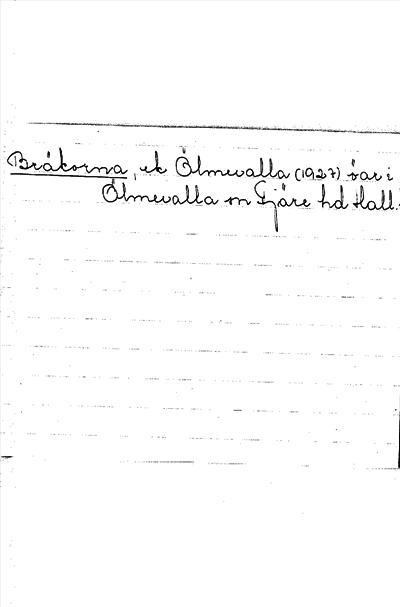 Bråkorna, ek Ölmevalla (1927) var i
Ölmevalla sn Fjäre hd Hall.